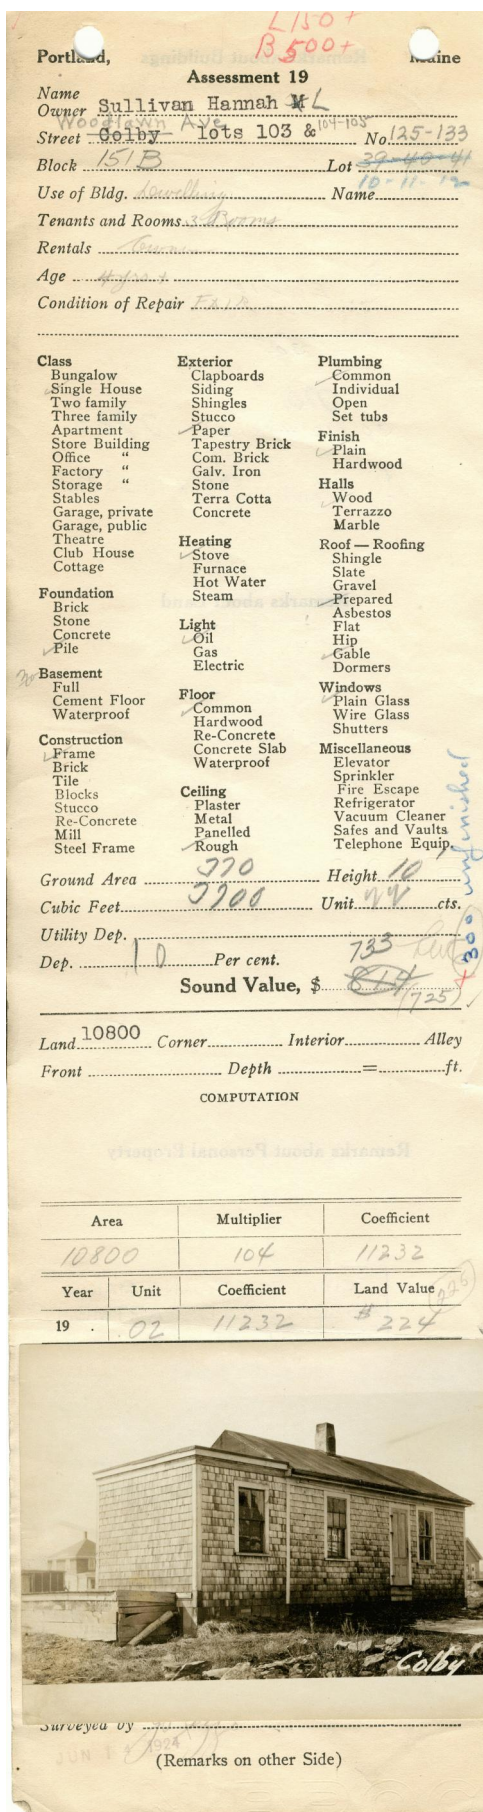 L 150 +
B 500 +
Portland, Maine
Assessment 19
Name
Owner Sullivan Hannah M L
Woodlawn Ave
Street Colby lots 103 & 104-105 No 125-133
Block 151 B Lot 39-40-41
10-11-12
Use of Bldg. Dwelling Name
Tenants and Rooms 3 Rooms
Rentals Owner
Age 4 yrs +
Condition of Repair Fair
Class
Bungalow
Single House
Two family
Three family
Apartment
Store Building
Office "
Factory "
Storage "
Stables
Garage, private
Garage, public
Theatre
Club House
Cottage
Foundation
Brick
Stone
Concrete
Pile
no Basement
Full
Cement Floor
Waterproof
Construction
Frame
Brick
Tile
Blocks
Stucco
Re-Concrete
Mill
Steel Frame
Exterior
Clapboards
Siding
Shingles
Stucco
Paper
Tapestry Brick
Com. Brick
Galv. Iron
Stone
Terra Cotta
Concrete
Heating
Stove
Furnace
Hot Water
Steam
Light
Oil
Gas
Electric
Floor
Common
Hardwood
Re-Concrete
Concrete Slab
Waterproof
Ceiling
Plaster
Metal
Panelled
Rough
Plumbing
Common
Individual
Open
Set tubs
Finish
Plain
Hardwood
Halls
Wood
Terrazzo
Marble
Roof — Roofing
Shingle
Slate
Gravel
Prepared
Asbestos
Flat
Hip
Gable
Dormers
Windows
Plain Glass
Wire Glass
Shutters
Miscellaneous
Elevator
Sprinkler
Fire Escape
Refrigerator
Vacuum Cleaner
Safes and Vaults
Telephone Equip.
+300 unfinished
Ground Area 370 Height 10'
Cubic Feet 3700 Unit 22 cts.
Utility Dep.
Dep. 10 Per cent. 733
Sound Value, $ 814
(725)
Land 10800 Corner Interior Alley
Front Depth = ft.
COMPUTATION
Area Multiplier Coefficient
10800 104 11232
Year Unit Coefficient Land Value 225
19 . .02 11232 $ 224
Colby
Surveyed by
JUN 1 1924
(Remarks on other Side)